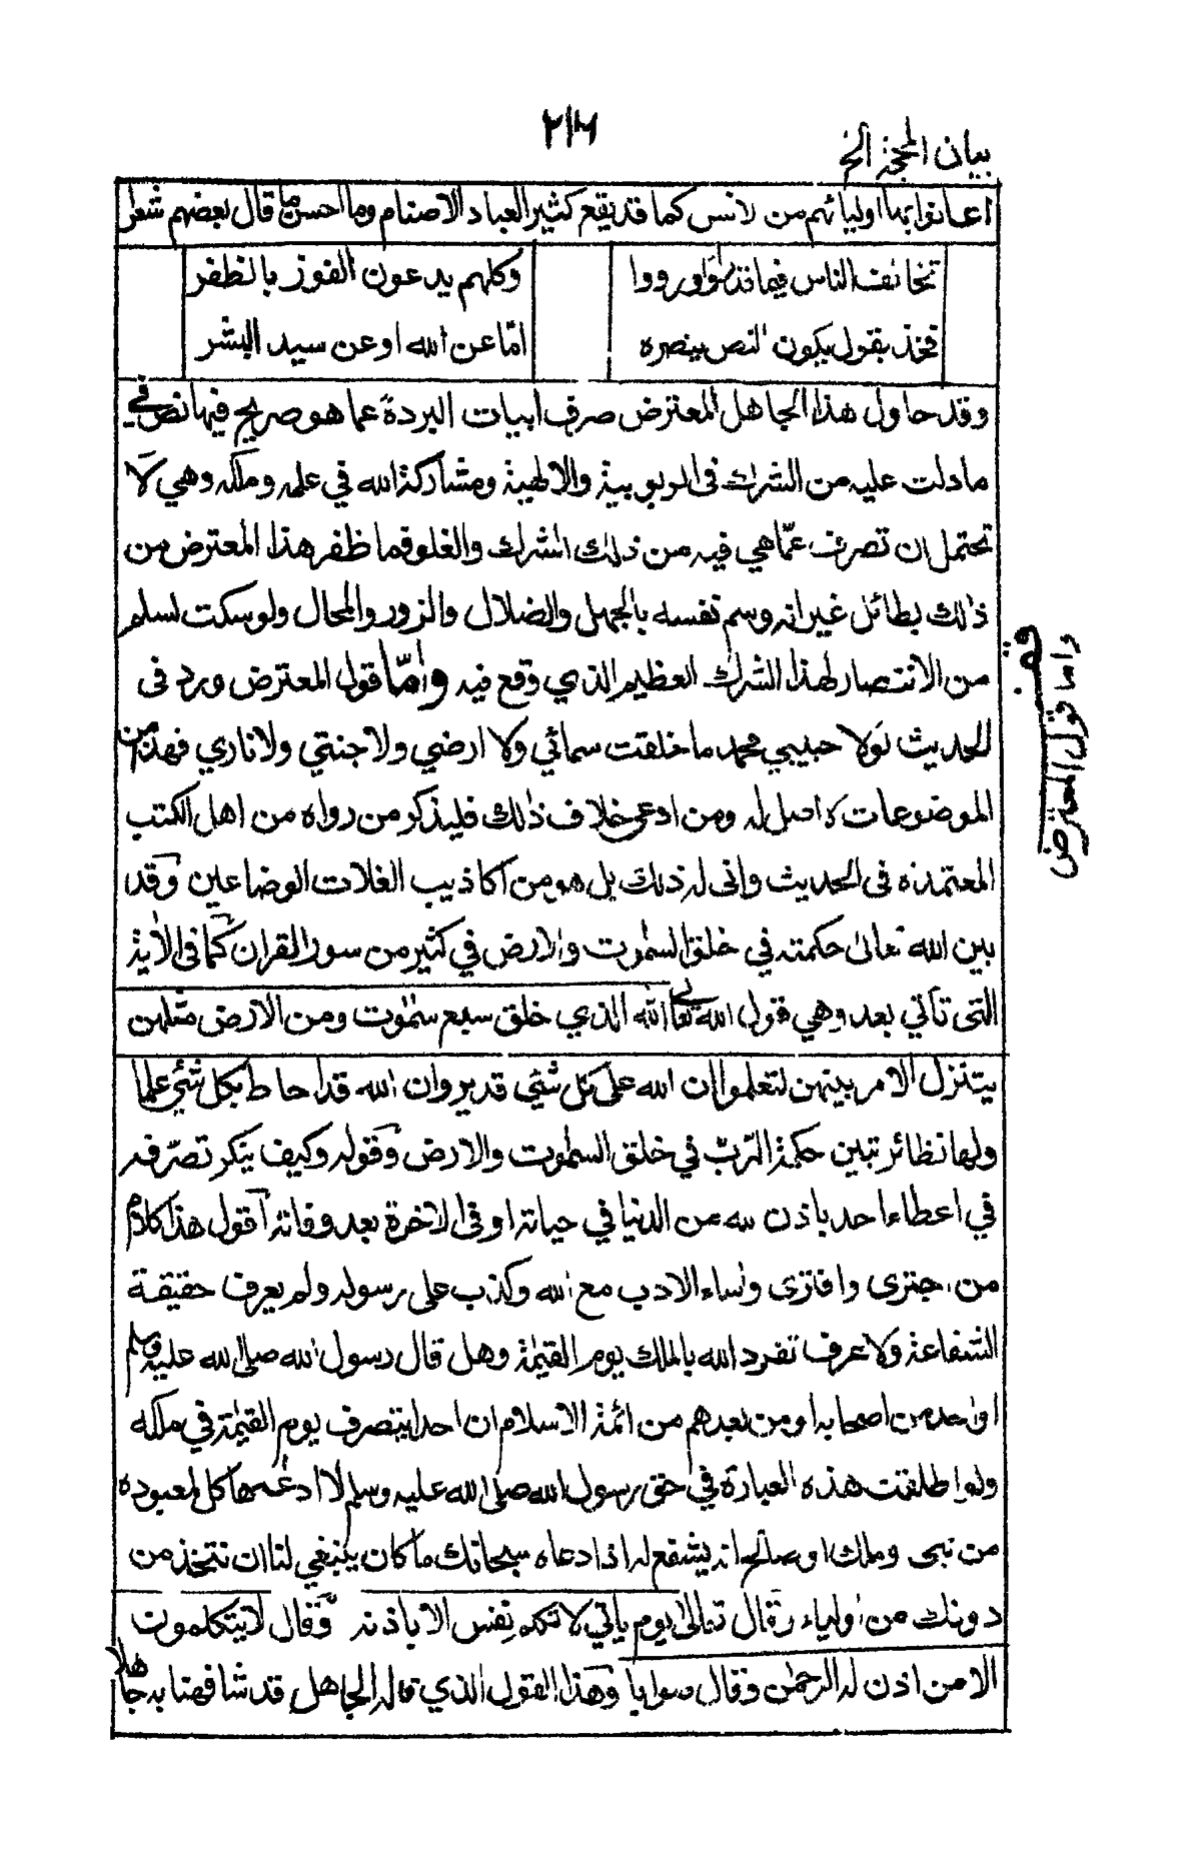 ٢١٦
بيان المحجة الخ
اعانوا بها اوليائهم من الانس كما قد يقع كثير العباد الاصنام وما احسن ما قال بعضهم شعر
تخالف الناس فيما قد رأوا ورووا
وكلهم يدعون الفوز بالظفر
فخذ بقول يكون النص ينصره
اما عن الله او عن سيد البشر
وقد حاول هذا الجاهل المعترض صرف ابيات البردة عما هو صريح فيها نص في
ما دلت عليه من الشرك فى الربوبية والالهية ومشاركة الله في علمه وملكه وهي لا
تحتمل ان تصرف عمّا هي فيه من ذلك الشرك والغلو فما ظفر هذا المعترض من
ذلك بطائل غير انه وسم نفسه بالجهل والضلال والزور والمحال ولو سكت لسلم
من الانتصار لهذا الشرك العظيم الذي وقع فيه وأمّا قول المعترض ورد فى
الحديث لولا حبيبي محمد ما خلقت سمائي ولا ارضي ولا جنتي ولا ناري فهذا من
الموضوعات لا اصل له ومن ادعى خلاف ذلك فليذكر من رواه من اهل الكتب
المعتمدة فى الحديث وانى له ذلك بل هو من اكاذيب الغلات الوضاعين وقد
بين الله تعالى حكمته في خلق السموت والارض في كثير من سور القران كما فى الاية
التى تأتي بعد وهي قول الله تعالى الله الذي خلق سبع سموت ومن الارض مثلهن
يتنزل الامر بينهن لتعلموا ان الله على كل شئي قدير وان الله قد احاط بكل شئي علما
ولها نظائر تبين حكمة الرّبّ في خلق السموت والارض وقوله وكيف ينكر تصرّفه
في اعطاء احد باذن الله من الدنيا في حياته او فى الاخرة بعد وفاته اقول هذا كلام
من اجترى وافترى واساء الادب مع الله وكذب على رسوله ولم يعرف حقيقة
الشفاعة ولا عرف تفرد الله بالملك يوم القيمة وهل قال رسول الله صلى الله عليه وسلم
او احد من اصحابه او من بعدهم من ائمة الاسلام ان احدا يتصرف يوم القيمة في ملكه
ولو اطلقت هذه العبارة في حق رسول الله صلى الله عليه وسلم لا ادعاها كل لمعبوده
من نبى وملك او صالح انه يشفع له اذا دعاه سبحانك ما كان ينبغي لنا ان نتخذ من
دونك من اولياء وقال تعالى يوم ياتي لا تكلم نفس الا باذنه وقال لا يتكلمون
الا من اذن له الرحمن وقال صوابا وهذا القول الذي قاله الجاهل قد شافهنا به جاهلا
واما قول المعترض